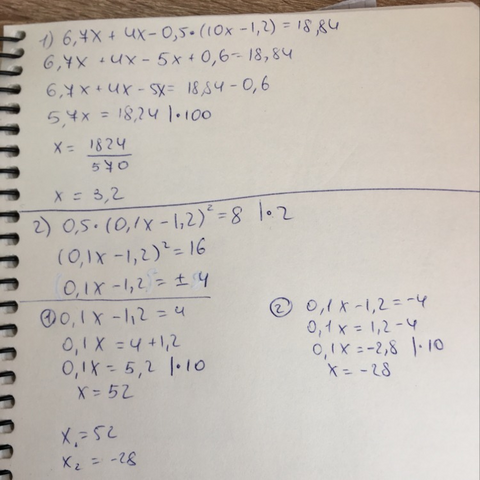 1) 6,7x + 4x - 0,5·(10x - 1,2) = 18,84
6,7x + 4x - 5x + 0,6 = 18,84
6,7x + 4x - 5x = 18,84 - 0,6
5,7x = 18,24 |·100
x = 1824/570
x = 3,2
2) 0,5·(0,1x - 1,2)² = 8 |·2
(0,1x - 1,2)² = 16
0,1x - 1,2 = ± 4
① 0,1x - 1,2 = 4
0,1x = 4 + 1,2
0,1x = 5,2 |·10
x = 52
② 0,1x - 1,2 = -4
0,1x = 1,2 - 4
0,1x = -2,8 |·10
x = -28
x₁ = 52
x₂ = -28